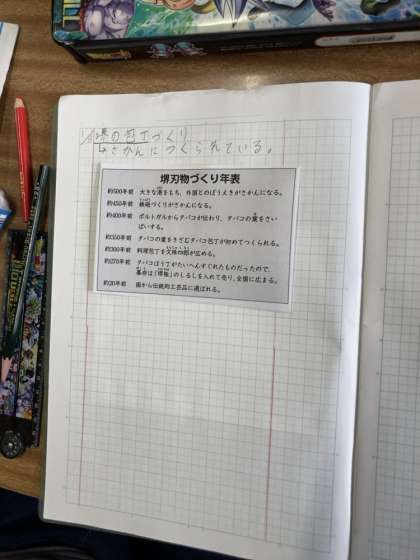 堺の包丁づくり
さかんにつくられている。
堺刃物づくり年表
約500年前 大きな港をもち、外国とのぼうえきがさかんになる。
約450年前 鉄砲づくりがさかんになる。
約400年前 ポルトガルからタバコが伝わり、タバコの葉をさい
ばいする。
約350年前 タバコの葉をきざむタバコ包丁が初めてつくられる。
約300年前 料理包丁を文珠四郎が広める。
約270年前 タバコほう丁がたいへんすぐれたものだったので、
幕府は「堺極」のしるしを入れて売り、全国に広まる。
約20年前 国から伝統的工芸品に選ばれる。